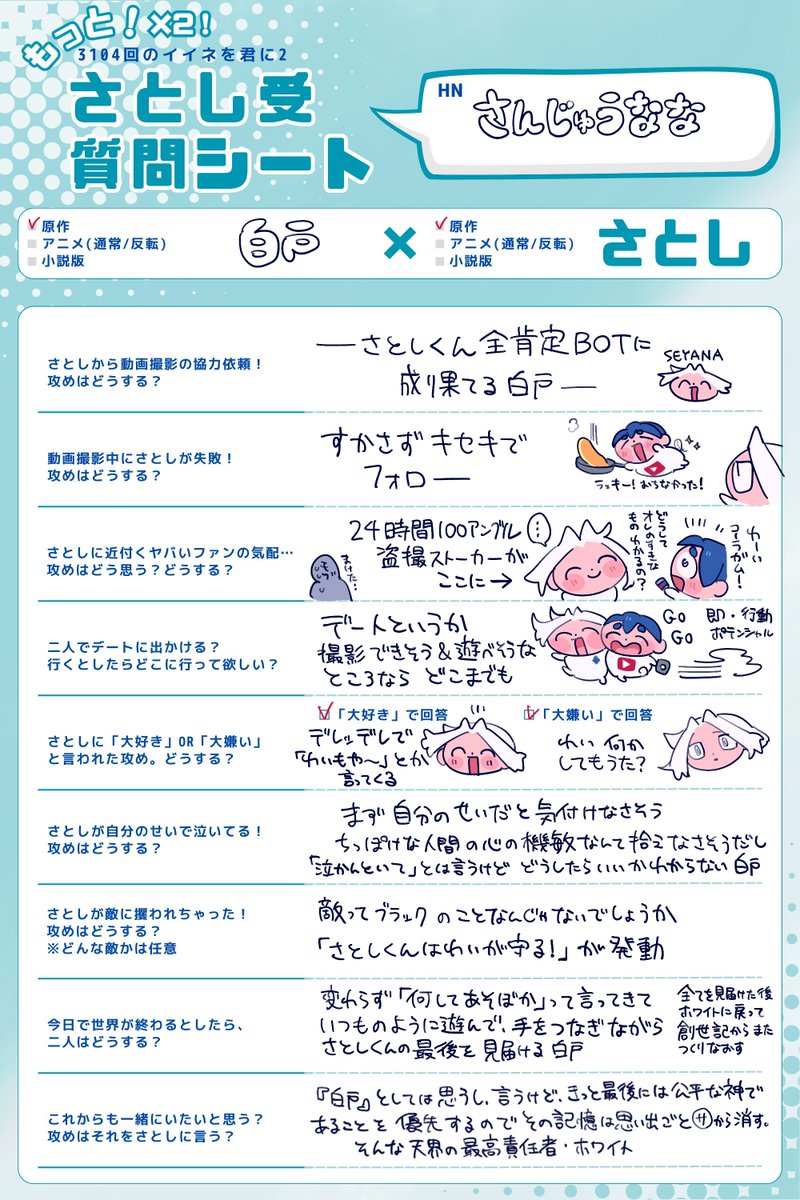 もっと！×2！
3104回のイイネを君に2
さとし受
質問シート
HN
さんじゅうなな
原作
アニメ(通常/反転)
小説版
白戸
×
原作
アニメ(通常/反転)
小説版
さとし
さとしから動画撮影の協力依頼！
攻めはどうする？
―さとしくん全肯定BOTに
成り果てる白戸―
SEYANA
動画撮影中にさとしが失敗！
攻めはどうする？
すかさずキセキで
フォロー
ラッキー！おちなかった！
さとしに近付くヤバいファンの気配…
攻めはどう思う？どうする？
まけた…
24時間100アングル
盗撮ストーカーが
ここに→
どうして
オレのすきな
ものわかるの？
わーい
コーラガム！
二人でデートに出かける？
行くとしたらどこに行って欲しい？
デートというか
撮影できそう&遊べそうな
ところなら どこまでも
GO
GO
即・行動
ポテンシャル
さとしに「大好き」OR「大嫌い」
と言われた攻め。どうする？
「大好き」で回答
デレッデレで
「わいもや〜」とか
言ってくる
「大嫌い」で回答
わい 何か
してもうた？
さとしが自分のせいで泣いてる！
攻めはどうする？
まず自分のせいだと気付けなさそう
ちっぽけな人間の心の機敏なんて拾えなさそうだし
「泣かんといて」とは言うけど どうしたらいいかわからない白戸
さとしが敵に攫われちゃった！
攻めはどうする？
※どんな敵かは任意
敵ってブラックのことなんじゃないでしょうか
「さとしくんはわいが守る！」が発動
今日で世界が終わるとしたら、
二人はどうする？
変わらず「何してあそぼか」って言ってきて
いつものように遊んで、手をつなぎながら
さとしくんの最後を見届ける白戸
全てを見届けた後
ホワイトに戻って
創世記からまた
つくりなおす
これからも一緒にいたいと思う？
攻めはそれをさとしに言う？
『白戸』としては思うし、言うけど、きっと最後には公平な神で
あることを優先するのでその記憶は思い出ごとサから消す。
そんな天界の最高責任者・ホワイト